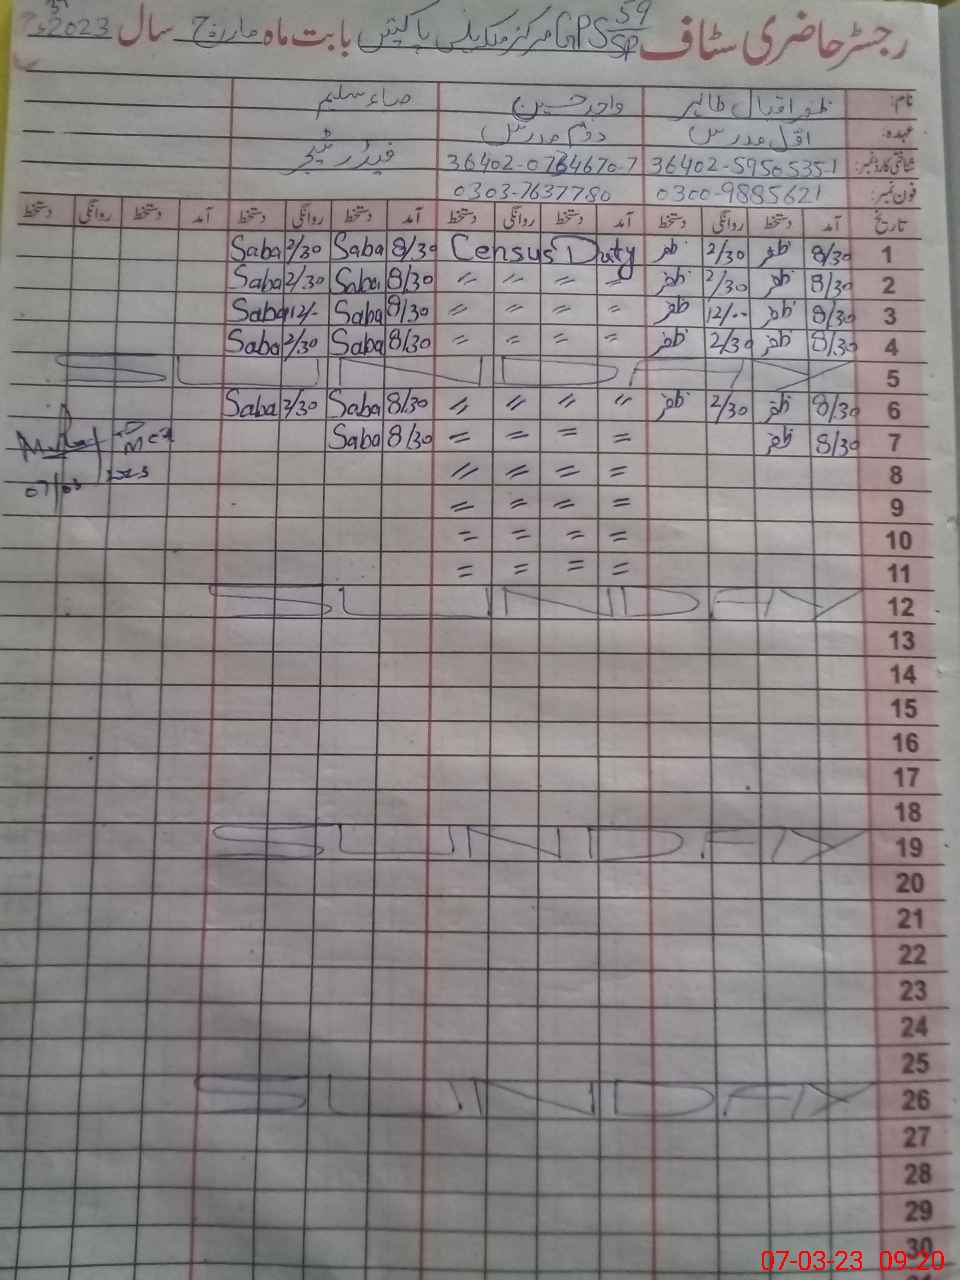 رجسٹر حاضری سٹاف GPS 59/SP مرکز ملکہ ہانس پاکپتن بابت ماہ مارچ سال 2023ء
نام: ظفر اقبال طاہر واجد حسین صباء سلیم
عہدہ: اول مدرس دوئم مدرس فیڈر ٹیچر
شناختی کارڈ نمبر: 36402-5950535-1 36402-0764670-7
فون نمبر: 0300-9885621 0303-7637780
تاریخ آمد دستخط روانگی دستخط آمد دستخط روانگی دستخط آمد دستخط روانگی دستخط آمد دستخط روانگی دستخط
1 8/30 ظفر 2/30 ظفر Census Duty 8/30 Saba 2/30 Saba
2 8/30 ظفر 2/30 ظفر 〃 〃 〃 〃 8/30 Saba 2/30 Saba
3 8/30 ظفر 12/00 ظفر 〃 〃 〃 〃 8/30 Saba 12/- Saba
4 8/30 ظفر 2/30 ظفر 〃 〃 〃 〃 8/30 Saba 2/30 Saba
5 SUNDAY
6 8/30 ظفر 2/30 ظفر 〃 〃 〃 〃 8/30 Saba 2/30 Saba
7 8/30 ظفر 〃 〃 〃 〃 8/30 Saba
8 〃 〃 〃 〃
07/03
9 〃 〃 〃 〃
10 〃 〃 〃 〃
11 〃 〃 〃 〃
12 SUNDAY
13
14
15
16
17
18
19 SUNDAY
20
21
22
23
24
25
26 SUNDAY
27
28
29
30
07-03-23 09:20